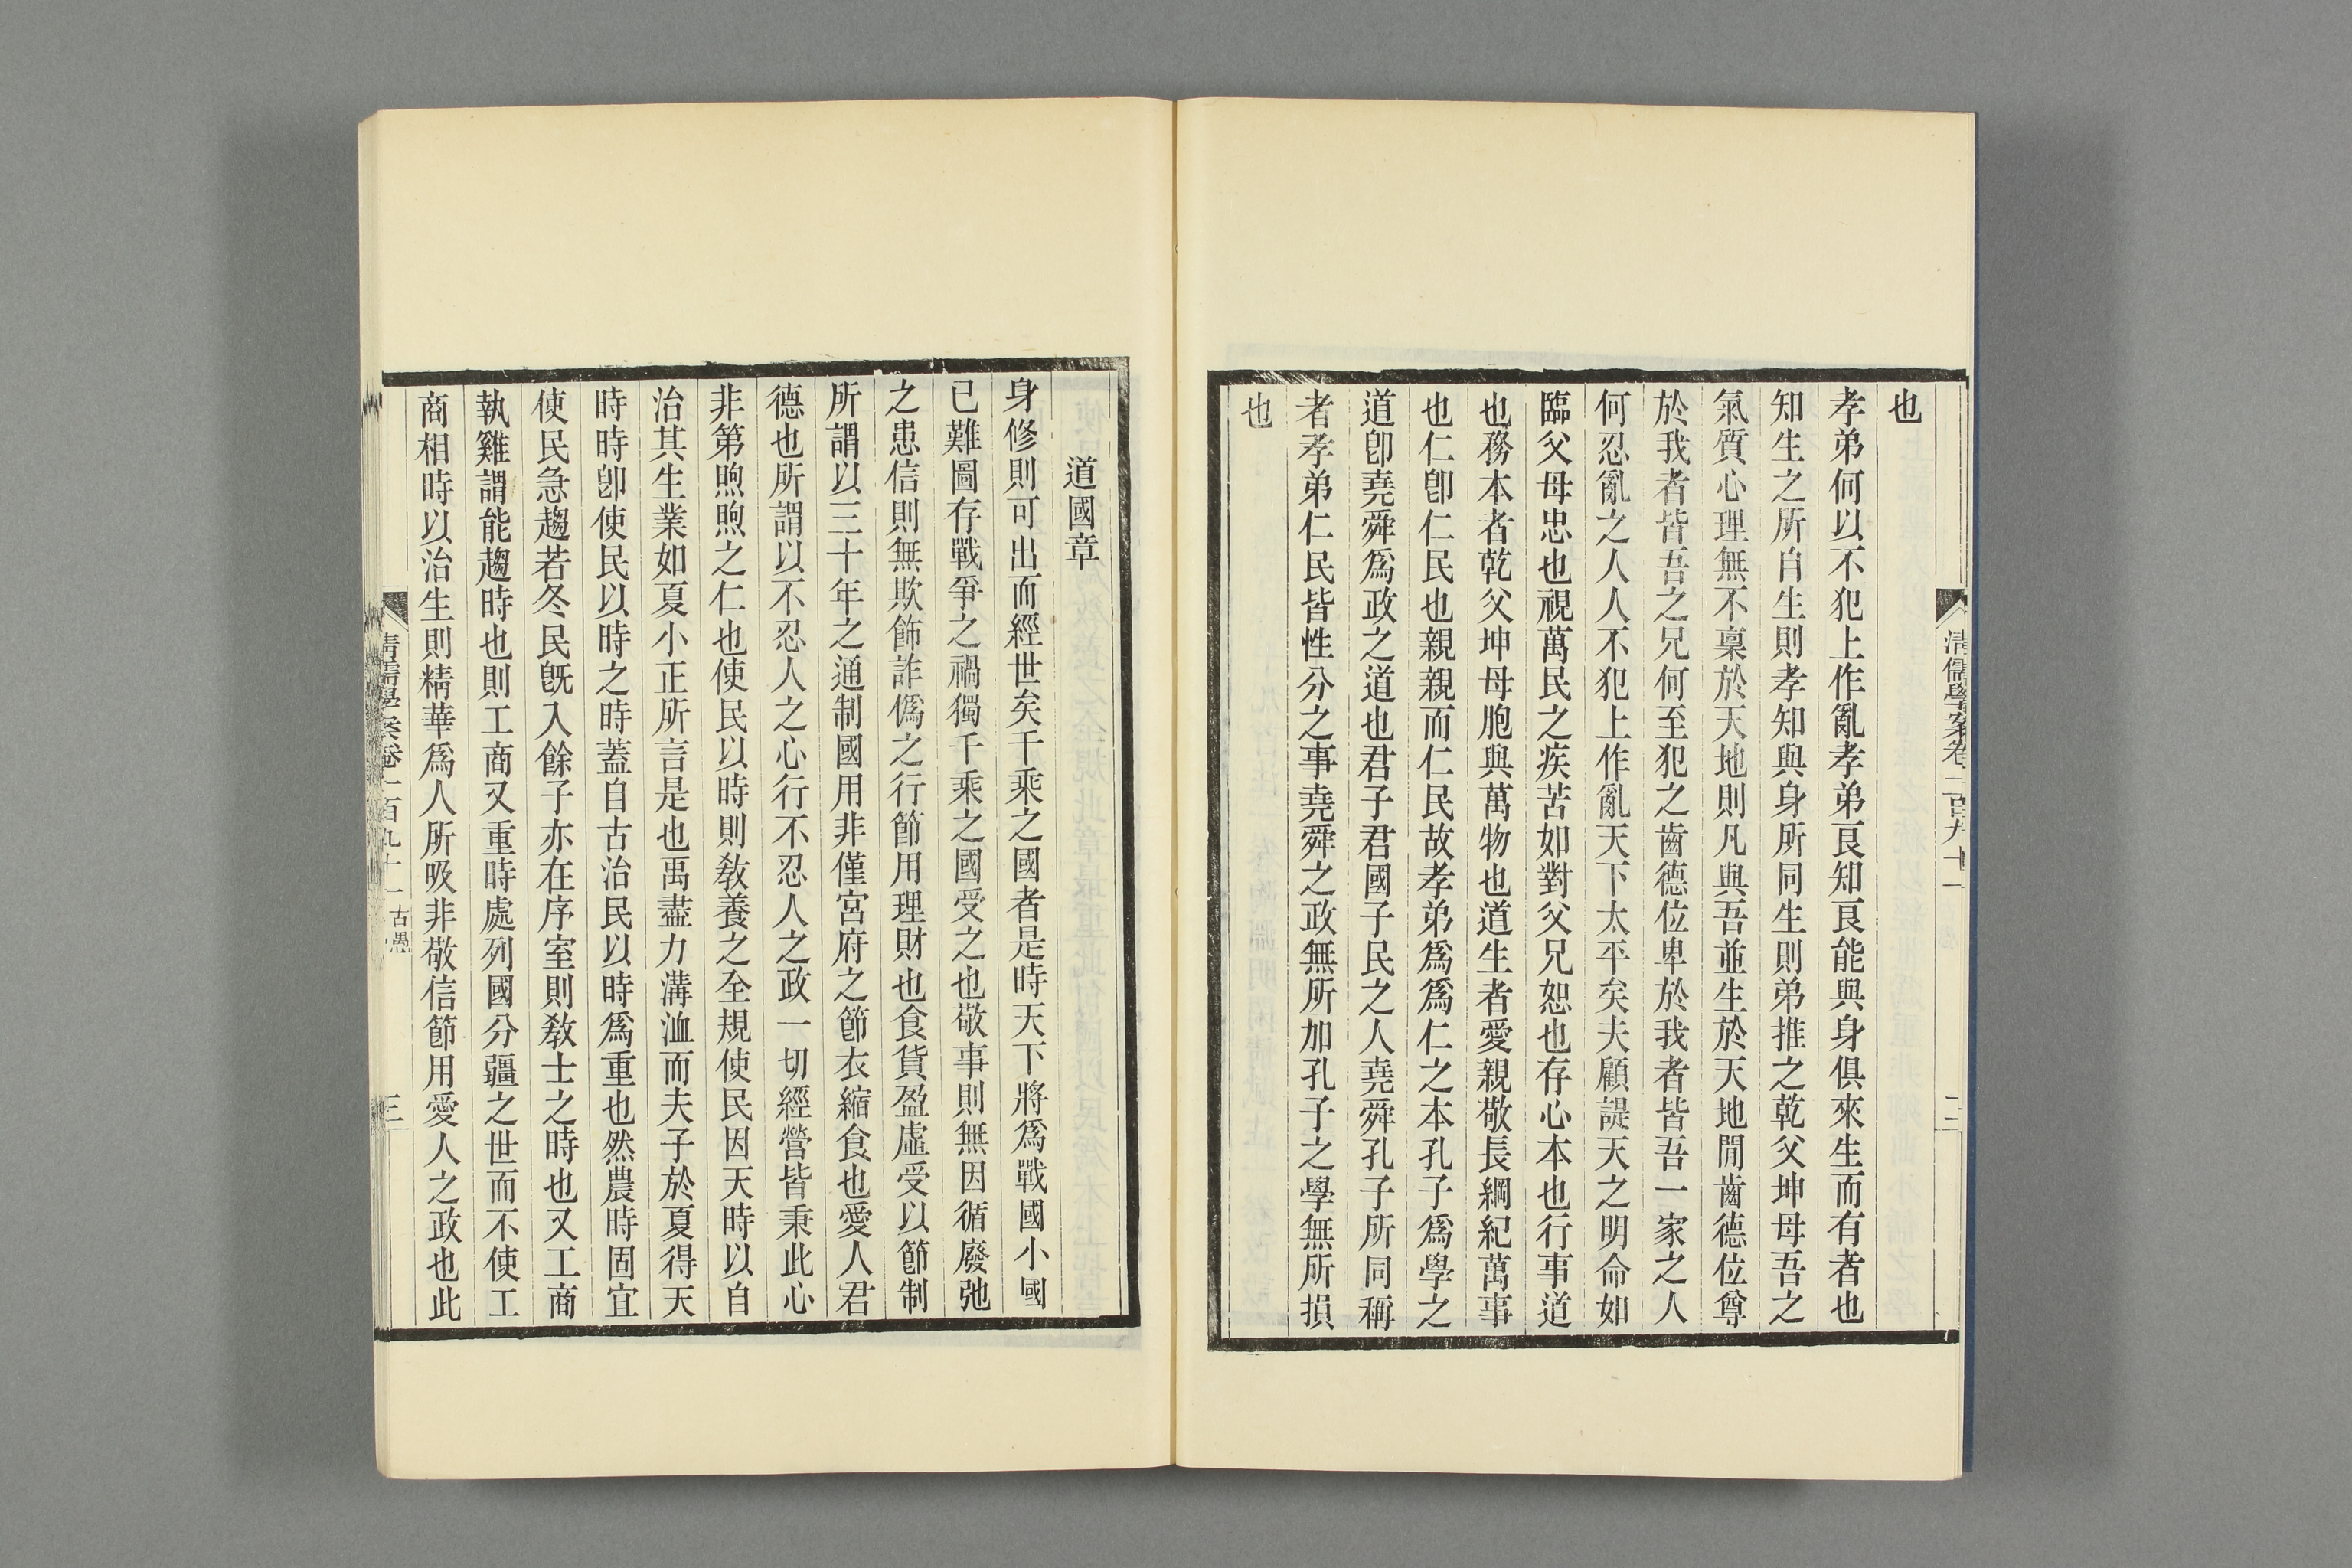 也
孝弟何以不犯上作亂孝弟良知良能與身俱來生而有者也
知生之所自生則孝知與身所同生則弟推之乾父坤母吾之
氣質心理無不稟於天地則凡與吾並生於天地間齒德位尊
於我者皆吾之兄何至犯之齒德位卑於我者皆吾一家之人
何忍亂之人人不犯上作亂天下太平矣夫顧諟天之明命如
臨父母忠也視萬民之疾苦如對父兄恕也存心本也行事道
也務本者乾父坤母胞與萬物也道生者愛親敬長綱紀萬事
也仁卽仁民也親親而仁民故孝弟爲爲仁之本孔子爲學之
道卽堯舜爲政之道也君子君國子民之人堯舜孔子所同稱
者孝弟仁民皆性分之事堯舜之政無所加孔子之學無所損
也
清儒學案卷一百九十一
二
道國章
身修則可出而經世矣千乘之國者是時天下將爲戰國小國
已難圖存戰爭之禍獨千乘之國受之也敬事則無因循廢弛
之患信則無欺飾詐僞之行節用理財也食貨盈虛受以節制
所謂以三十年之通制國用非僅宮府之節衣縮食也愛人君
德也所謂以不忍人之心行不忍人之政一切經營皆秉此心
非第煦煦之仁也使民以時則敎養之全規使民因天時以自
治其生業如夏小正所言是也禹盡力溝洫而夫子於夏得天
時時卽使民以時之時蓋自古治民以時爲重也然農時固宜
使民急趨若冬民旣入餘子亦在序室則敎士之時也又工商
執雞謂能趨時也則工商又重時處列國分疆之世而不使工
商相時以治生則精華爲人所吸非敬信節用愛人之政也此
清儒學案卷一百九十一
古愚
三